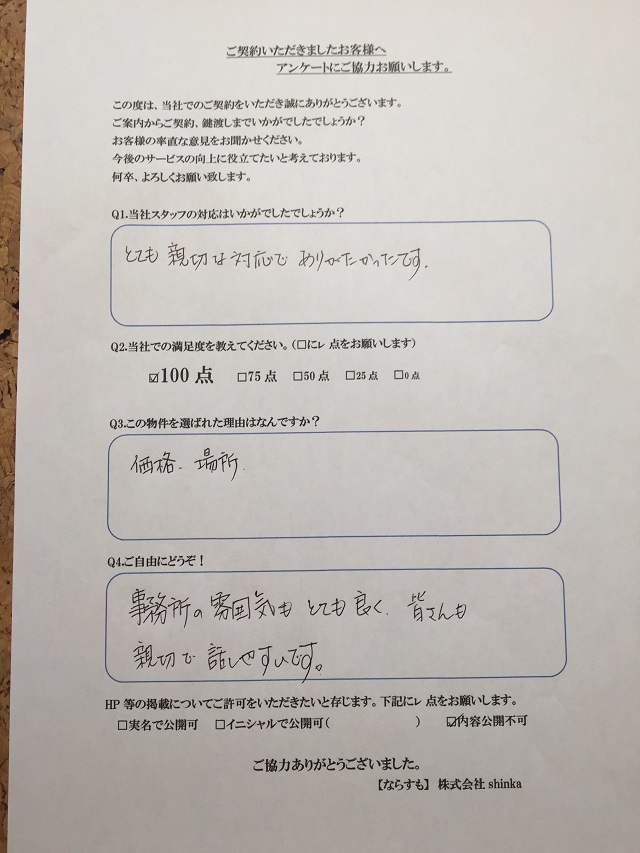 ご契約いただきましたお客様へ
アンケートにご協力お願いします。
この度は、当社でのご契約をいただき誠にありがとうございます。
ご案内からご契約、鍵渡しまでいかがでしたでしょうか？
お客様の率直な意見をお聞かせください。
今後のサービスの向上に役立てたいと考えております。
何卒、よろしくお願い致します。
Q1.当社スタッフの対応はいかがでしたでしょうか？
とても親切な対応でありがたかったです.
Q2.当社での満足度を教えてください。(□にレ点をお願いします)
☑100点 □75点 □50点 □25点 □0点
Q3.この物件を選ばれた理由はなんですか？
価格、場所.
Q4.ご自由にどうぞ！
事務所の雰囲気もとても良く、皆さんも
親切で話しやすいです。
HP等の掲載についてご許可をいただきたいと存じます。下記にレ点をお願します。
□実名で公開可 □イニシャルで公開可( ) ☑内容公開不可
ご協力ありがとうございました。
【ならすも】 株式会社 shinka